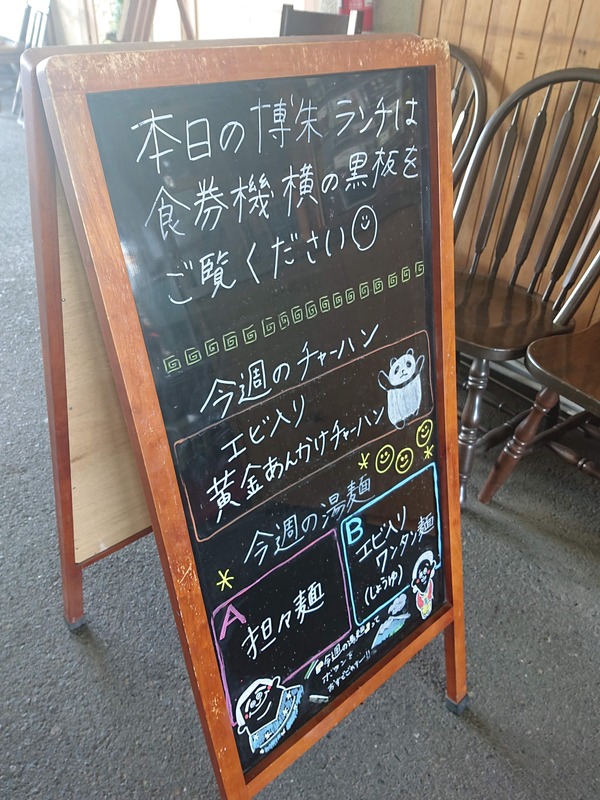 本日の博朱ランチは
食券機横の黒板を
ご覧ください
今週のチャーハン
エビ入り
黄金あんかけチャーハン
今週の湯麺
A
担々麺
B
エビ入り
ワンタン麺
(しょうゆ)
ボタンを